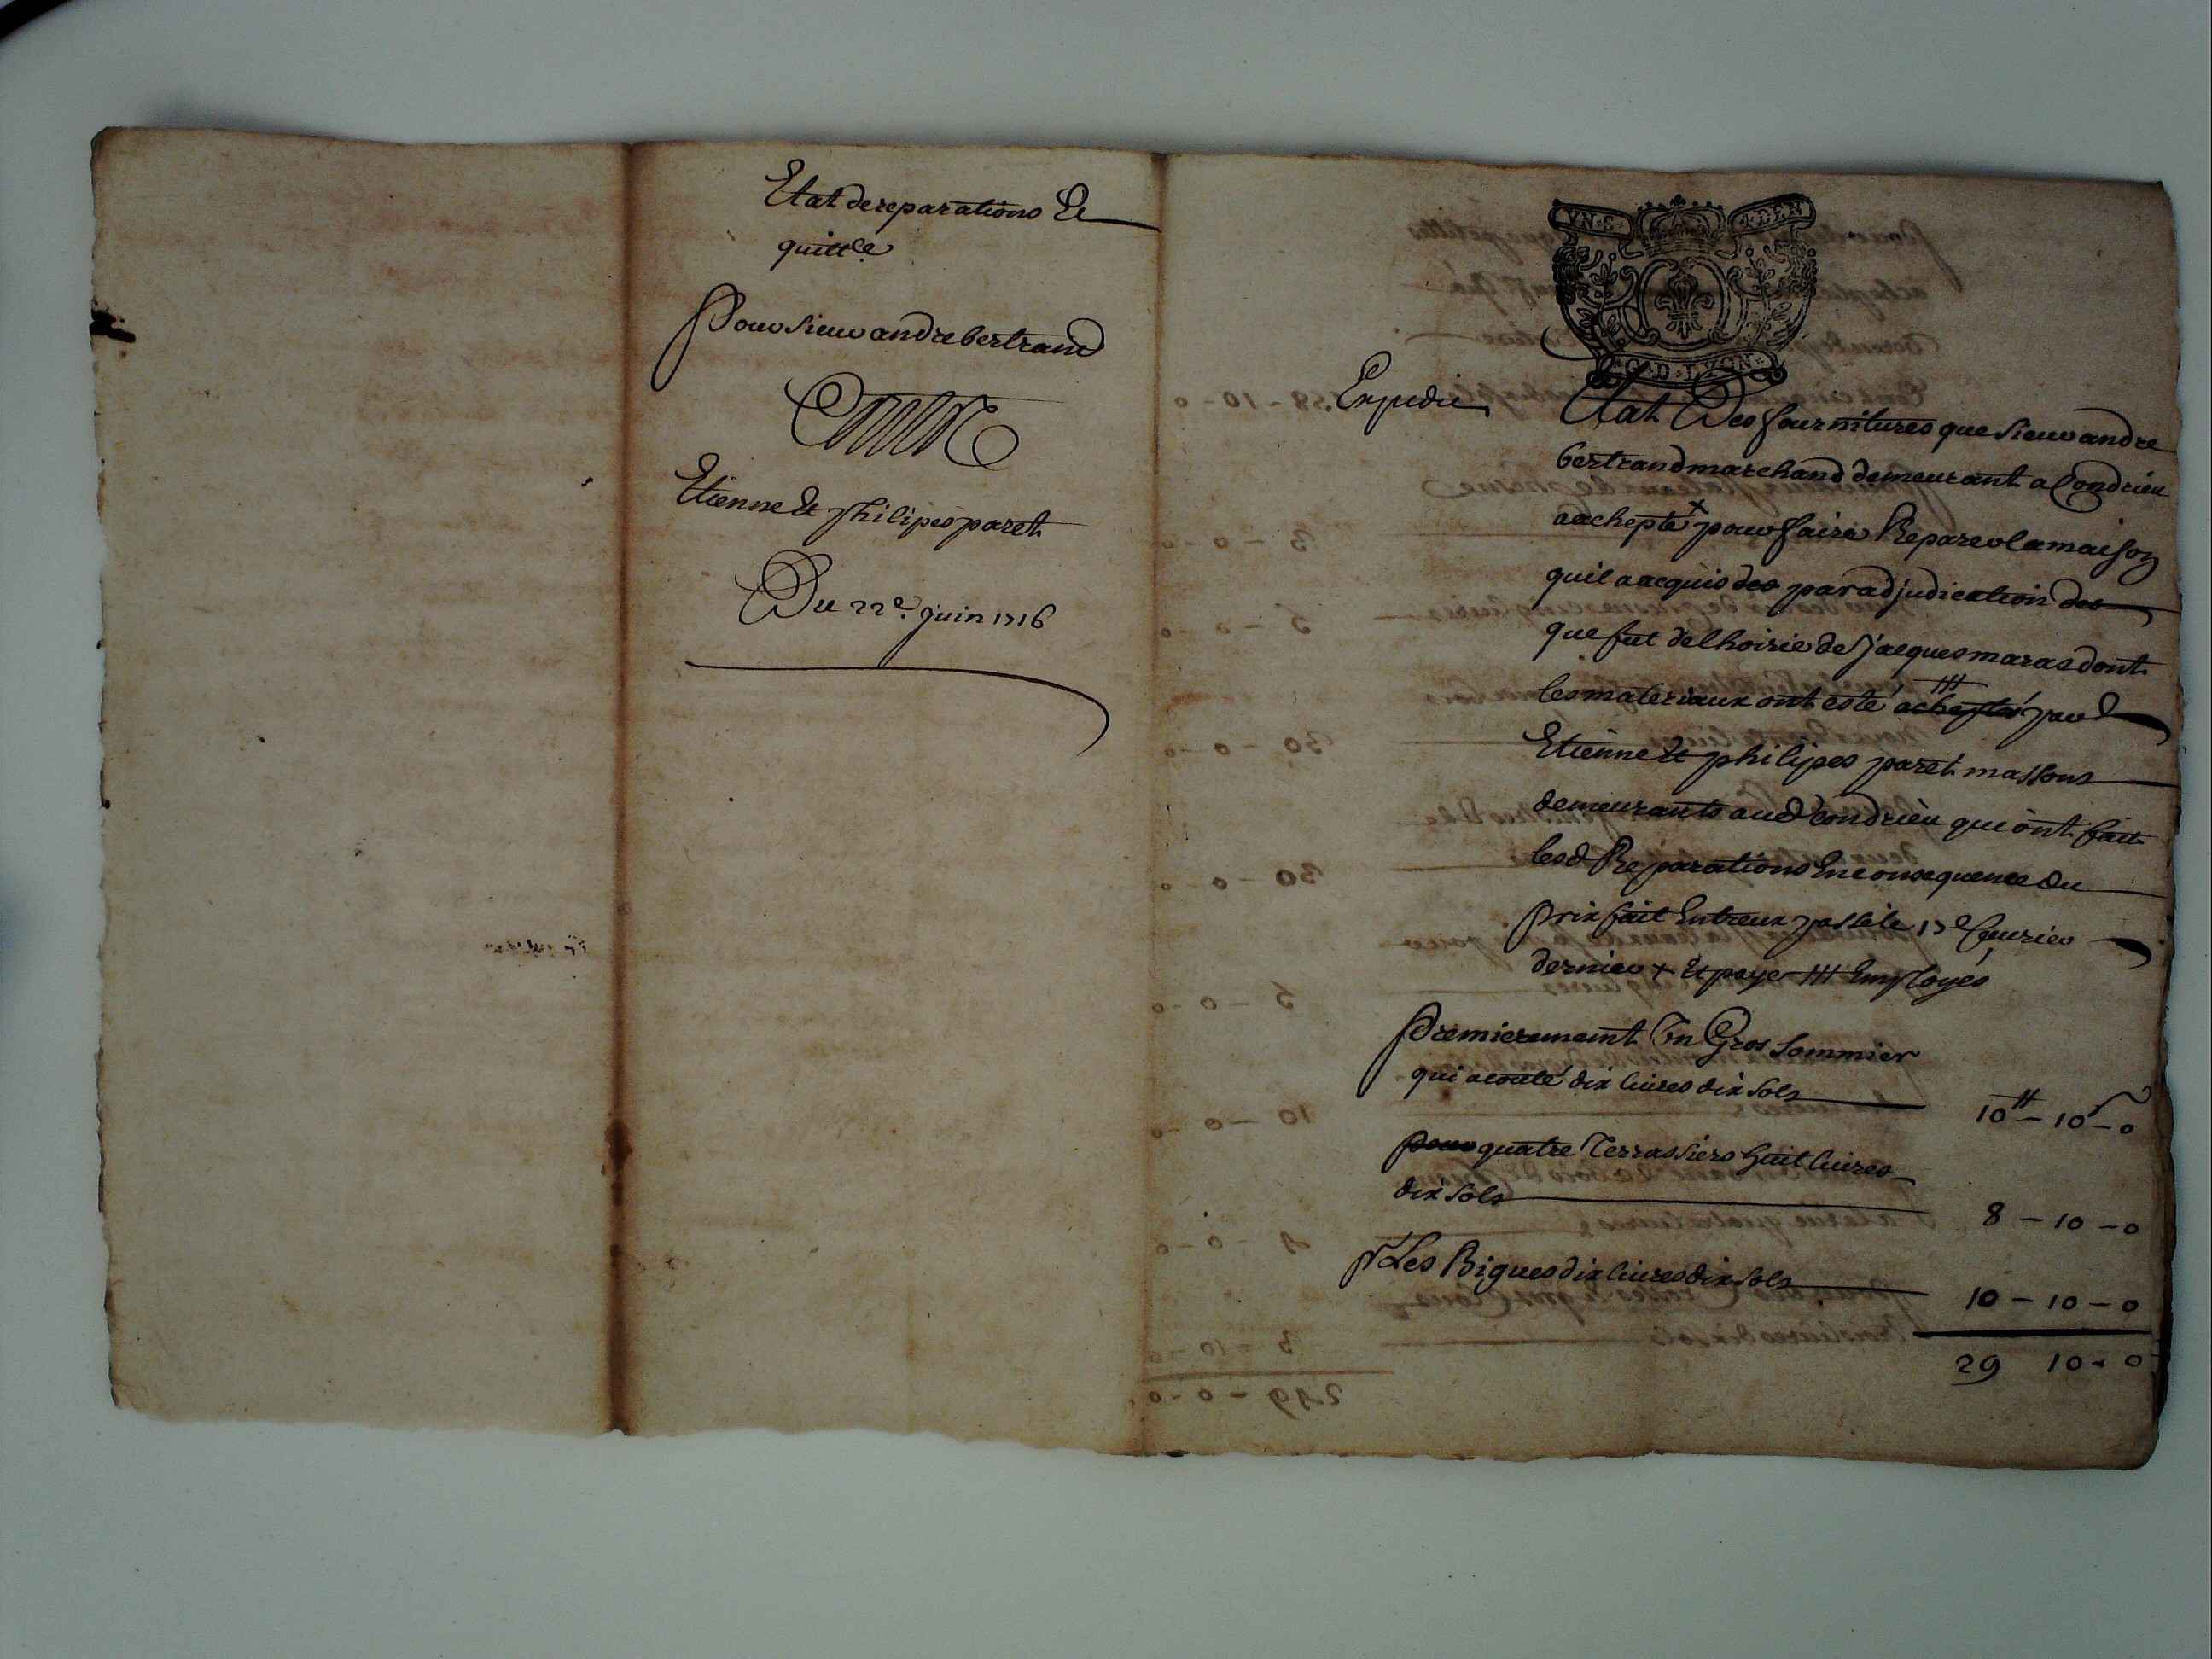 Etat de reparations Et
quitt.ce
Pour sieur andre bertrand
Contre
Etienne et philipes paret
Du 22e. juin 1716
VN·S· 4·DEN
G·D·LYON
Expedié
Etat Des fournitures que sieur andre
bertrand marchand demeurant a Condrieu
a achepté + pour faire Reparer la maison
quil a acquis des par adjudication des
que fut de lhoirie de Jacques maras dont
les materiaux ont esté acheptes /// par
Etienne et philipes paret massons
demeurants aud Condrieu qui ont fait
lesd Reparations En consequence du
prix fait Entreux passé le 17e feurier
dernier + Et paye /// Employés
premieremeint Vn Gros sommier
qui a couté dix liures dix sols
10 ͭ ͭ - 10 s - 0
pour quatre Terrassiers huit liures
dix sols
8 - 10 - 0
pr Les Bigues dix liures dix sols
10 - 10 - 0
29 10 - 0